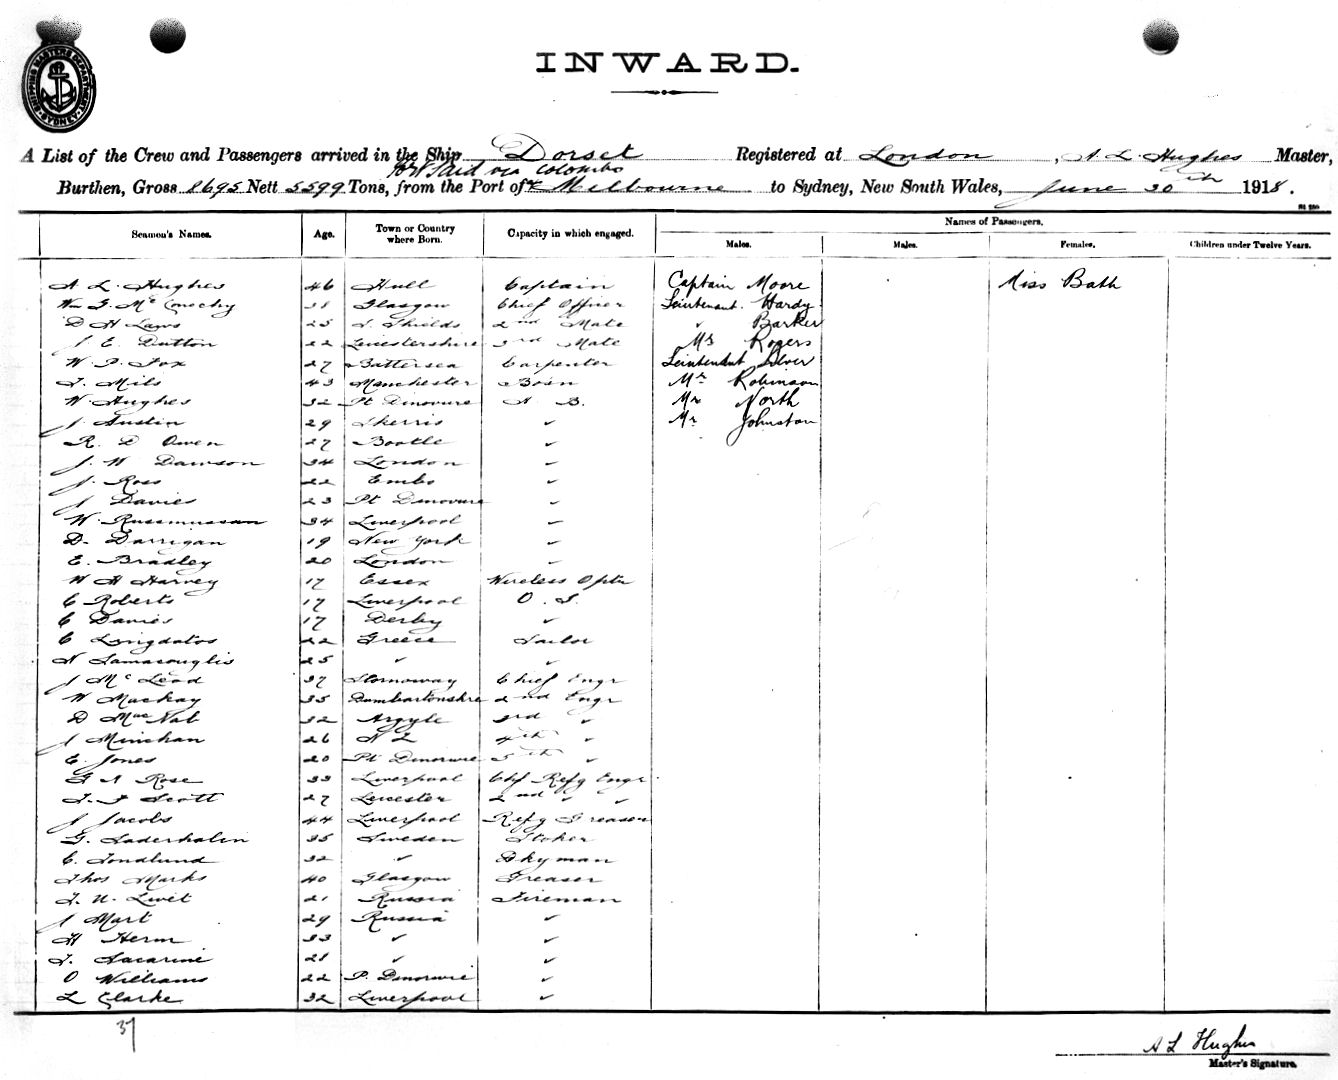 SHIPPING MASTER'S DEPARTMENT SYDNEY
INWARD.
A List of the Crew and Passengers arrived in the Ship Dorset Registered at London, A L Hughes Master,
Pt Said via Colombo
Burthen, Gross 8695 Nett 5599 Tons, from the Port of & Melbourne to Sydney, New South Wales, June 30th 1918.
Seamen's Names. Age. Town or Country where Born. Capacity in which engaged. Names of Passengers.
Males. Males. Females. Children under Twelve Years.
A L Hughes 46 Hull Captain Captain Moore Miss Bath
Wm G. McConechy 38 Glasgow Chief Officer Leintenant Hardy
D H Laws 25 S. Shields 2nd Mate " Barker
J E. Dutton 22 Leicestershire 3rd Mate Mr Rogers
W. P. Fox 27 Battersea Carpenter Leintenant Silver
T. Mils 43 Manchester Bosn Mr Robinson
W. Hughes 32 Pt Dinovure A B. Mr North
J. Austin 29 Skerris " Mr Johnston
R. D Owen 27 Bootle "
J. W Dawson 34 London "
J. Ross 22 Embo "
J Davies 23 Pt Dinovure "
W. Russmussan 34 Liverpool "
D. Darrigan 19 New York "
E. Bradley 20 London "
W H Harvey 17 Essex Wireless Optr
C Roberts 17 Liverpool O. S.
C Davies 17 Derby "
C 22 Greece Sailor
N 25 " "
J McLeod 37 Stornoway Chief Engr
W Mackay 35 Dumbartonshire 2nd Engr
D MacNab 32 Argyle 3rd "
J Minehan 26 N Z 4th "
E. Jones 20 Pt Dinorwic 5th "
G A Rose 33 Liverpool Chf Refg Engr
T. F Scott 27 Leicester 2nd " "
J Jacobs 44 Liverpool Refg Greaser
G. Saderhalin 35 Sweden Stoker
C. Tondlund 32 " Dkyman
Thos Marks 40 Glasgow Greaser
T. U. Livit 21 Russia Fireman
J Mart 29 Russia "
H Herm 33 " "
T. Sacarine 28 " "
O Williams 22 P. Dinorwic "
L Clarke 32 Liverpool "
37
A L Hughes
Master's Signature.